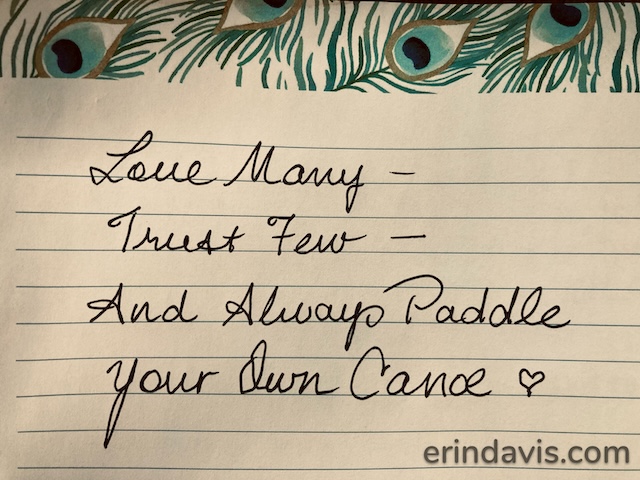 Love Many –
Trust Few –
And Always Paddle
Your Own Canoe ♡
erindavis.com